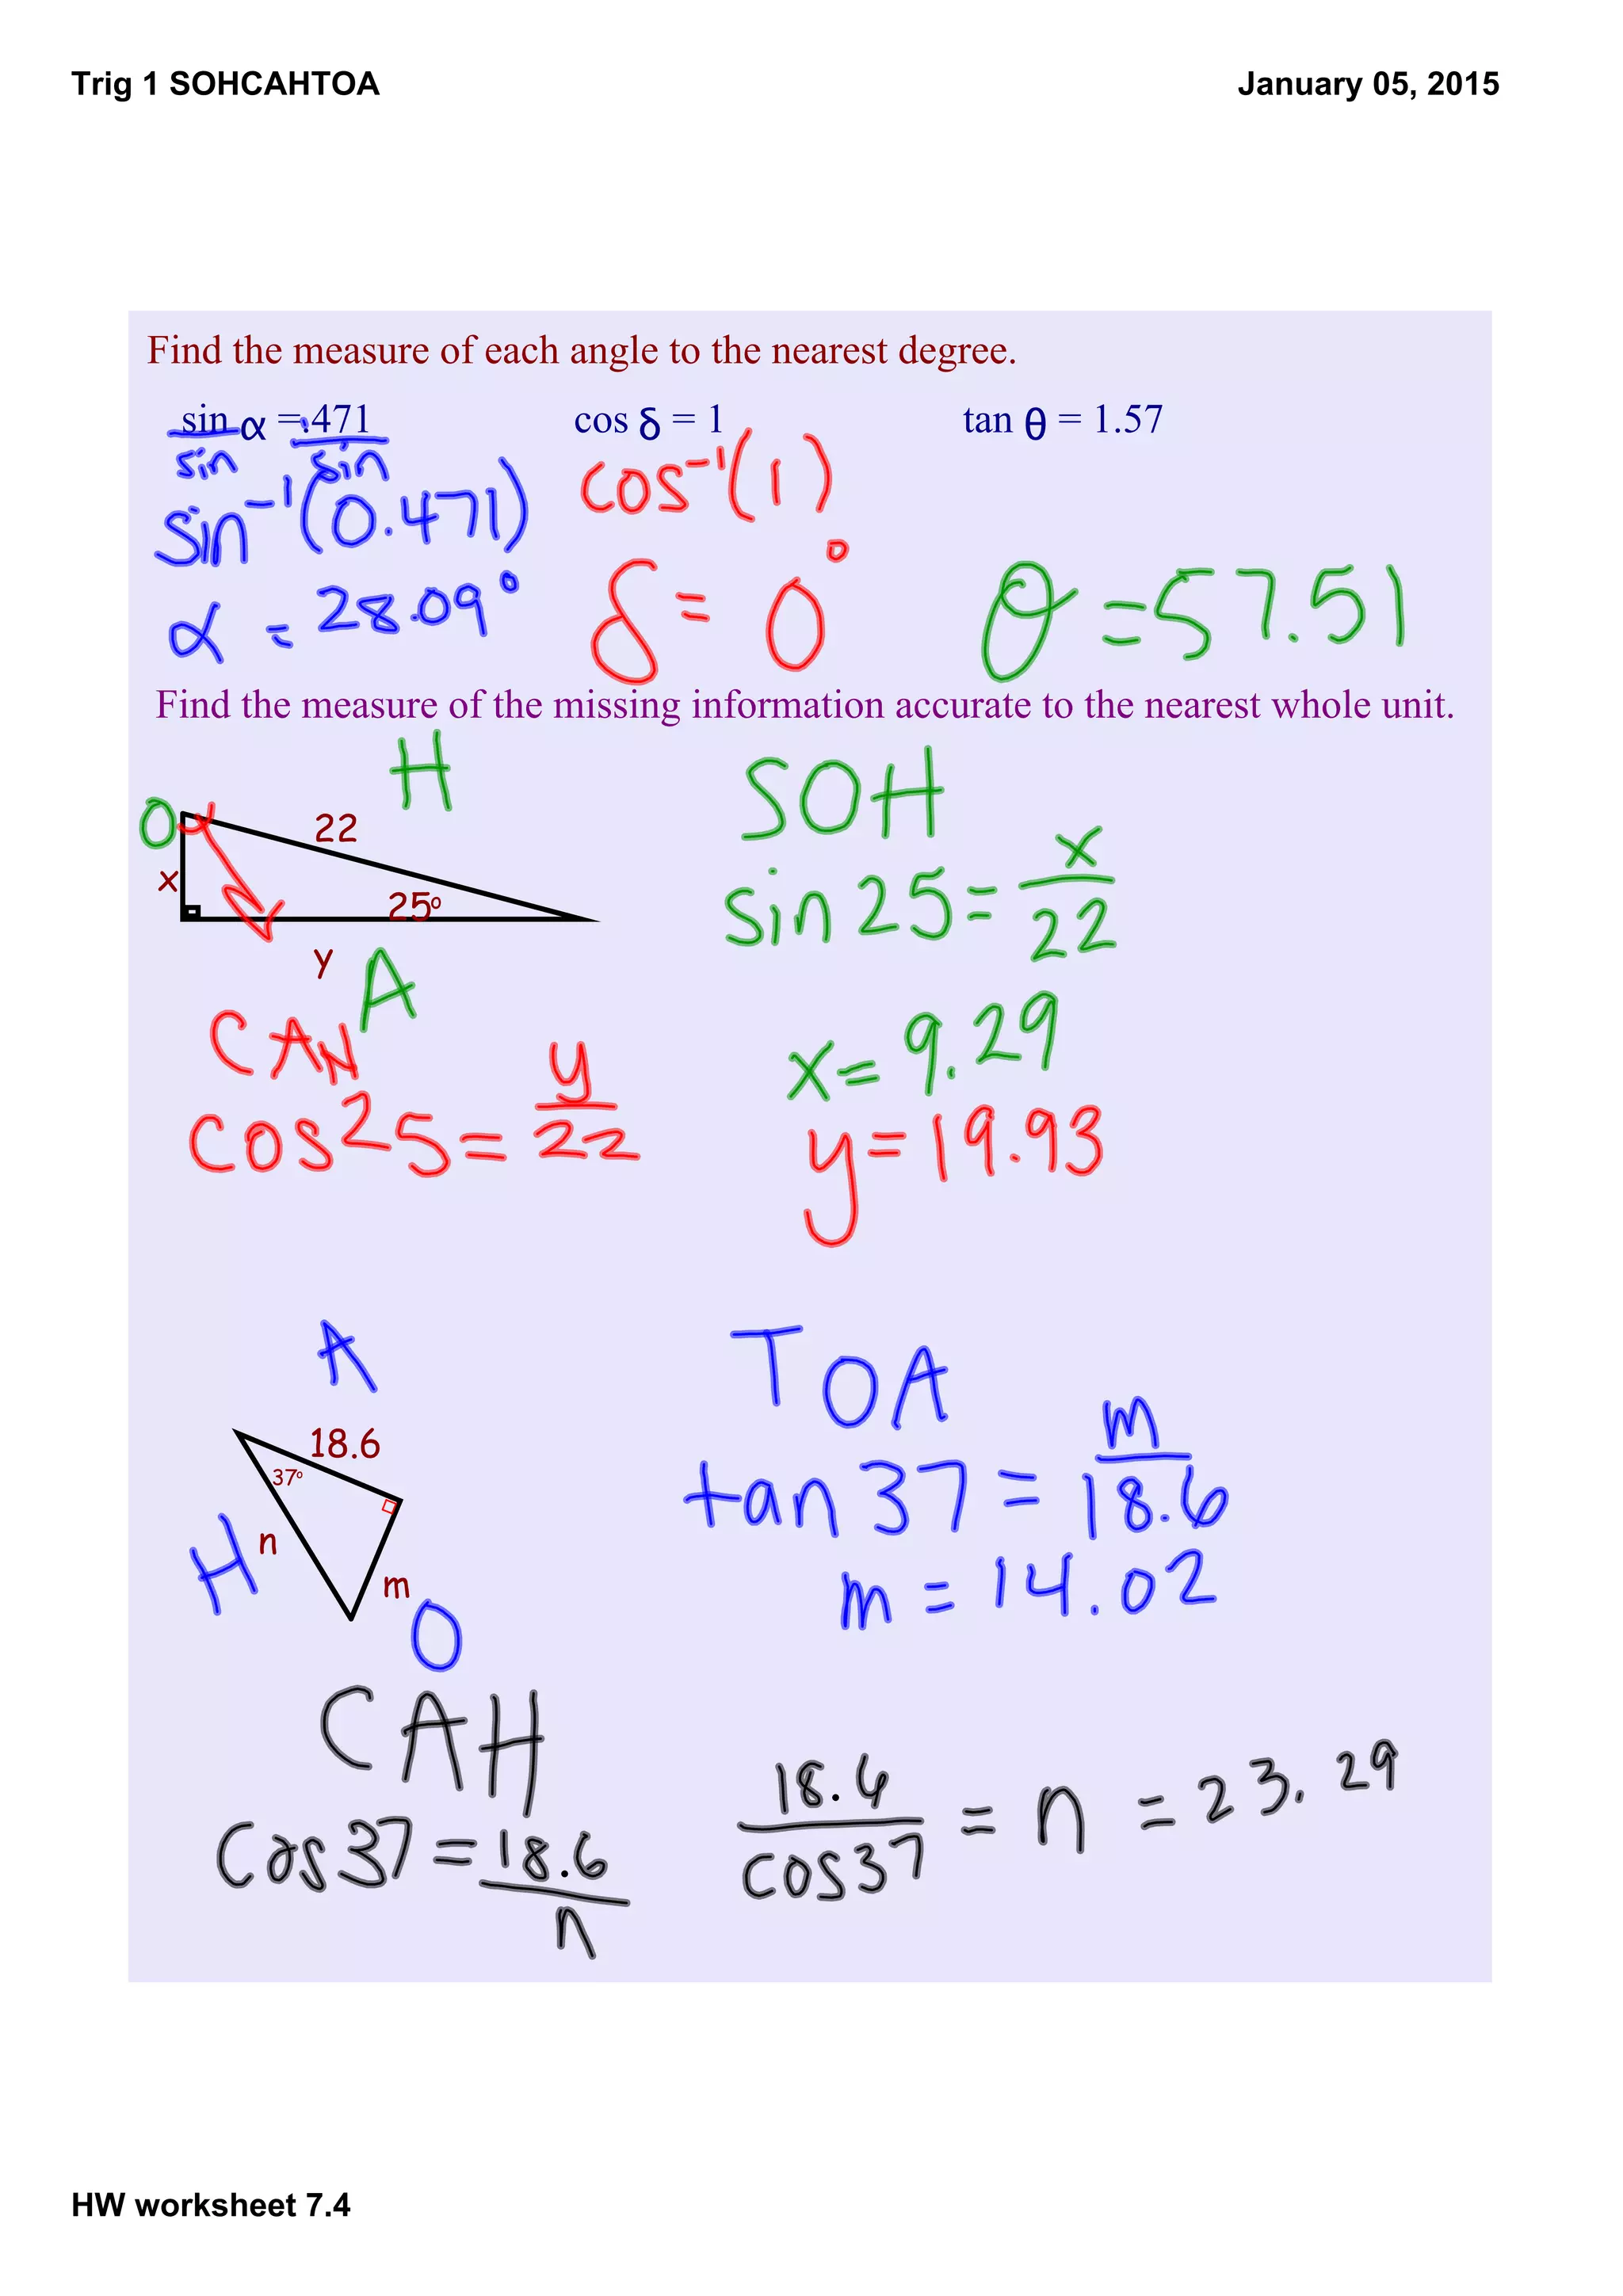 Trig 1 SOHCAHTOA
January 05, 2015
Find the measure of each angle to the nearest degree.
sin α = .471
cos δ = 1
tan θ = 1.57
sin sin
sin⁻¹(0.471)
α = 28.09°
cos⁻¹(1)
δ = 0°
θ = 57.51
Find the measure of the missing information accurate to the nearest whole unit.
H
O
22
x
25°
y
A
SOH
sin 25 = x/22
x = 9.29
CAH
cos 25 = y/22
y = 19.93
A
18.6
37°
n
H
m
O
TOA
tan 37 = m/18.6
m = 14.02
CAH
cos 37 = 18.6/n
18.6/cos37 = n = 23.29
HW worksheet 7.4